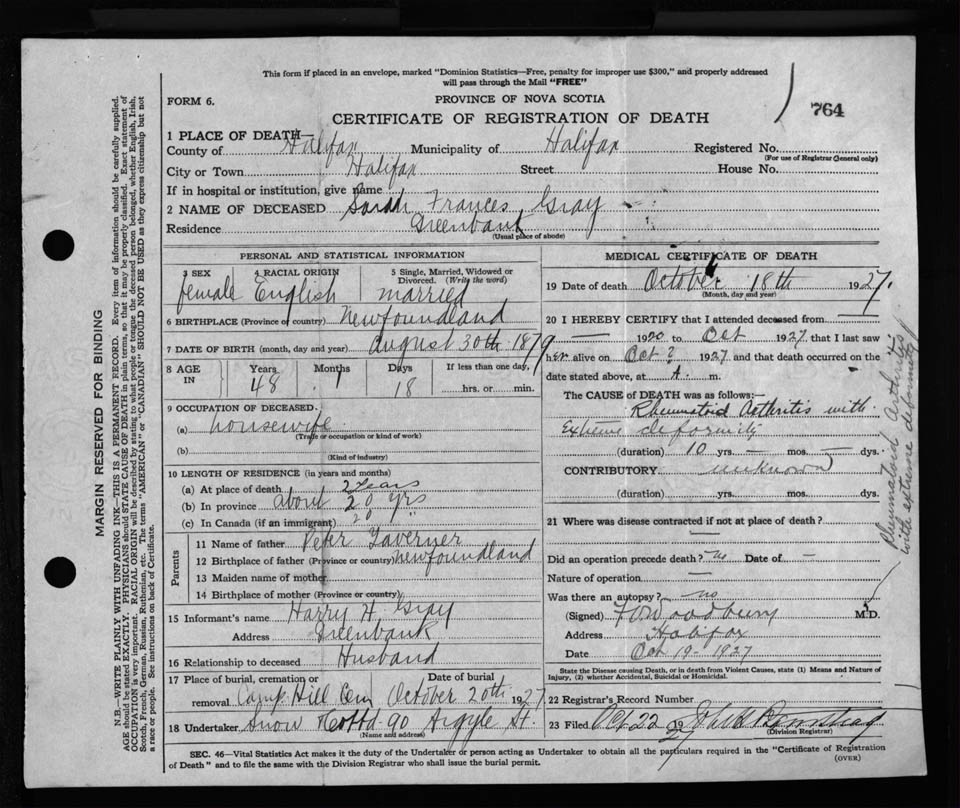 This form if placed in an envelope, marked "Dominion Statistics—Free, penalty for improper use $300," and properly addressed
will pass through the Mail "FREE"
FORM 6.
PROVINCE OF NOVA SCOTIA
764
CERTIFICATE OF REGISTRATION OF DEATH
1 PLACE OF DEATH—
County of Halifax Municipality of Halifax Registered No.
(For use of Registrar General only)
City or Town Halifax Street House No.
If in hospital or institution, give name
2 NAME OF DECEASED Sarah Frances Gray
Residence Greenbank
(Usual place of abode)
PERSONAL AND STATISTICAL INFORMATION
3 SEX 4 RACIAL ORIGIN 5 Single, Married, Widowed or
Divorced. (Write the word)
female English married
6 BIRTHPLACE (Province or country) Newfoundland
7 DATE OF BIRTH (month, day and year) August 30th 1879
8 AGE IN Years Months Days If less than one day,
48 1 18 hrs. or min.
9 OCCUPATION OF DECEASED.
(a) housewife
(Trade or occupation or kind of work)
(b)
(Kind of industry)
10 LENGTH OF RESIDENCE (in years and months)
(a) At place of death 2 years
(b) In province about 20 yrs
(c) In Canada (if an immigrant) 20 "
Parents
11 Name of father Peter Taverner
12 Birthplace of father (Province or country) Newfoundland
13 Maiden name of mother
14 Birthplace of mother (Province or country)
15 Informant's name Harry H. Gray
Address Greenbank
16 Relationship to deceased Husband
17 Place of burial, cremation or Date of burial
removal Camp Hill Cem October 20th 1927
18 Undertaker Snow & Co Ltd - 90 Argyle St.
(Name and address)
MEDICAL CERTIFICATE OF DEATH
19 Date of death October 18th 1927.
(Month, day and year)
20 I HEREBY CERTIFY that I attended deceased from
— 1920 to Oct 1927 that I last saw
her alive on Oct ? 1927 and that death occurred on the
date stated above, at A. m.
The CAUSE OF DEATH was as follows:
Rheumatoid Arthritis with
Extreme deformity
(duration) 10 yrs. — mos. — dys.
CONTRIBUTORY unknown
(duration) yrs. mos. dys.
21 Where was disease contracted if not at place of death?
Did an operation precede death? no Date of —
Nature of operation —
Was there an autopsy? no
(Signed) F. Woodbury M.D.
Address Halifax
Date Oct 19 - 1927
State the Disease causing Death, or in death from Violent Causes, state (1) Means and Nature of
Injury, (2) whether Accidental, Suicidal or Homicidal.
22 Registrar's Record Number
23 Filed Oct 22 19 27
(Division Registrar)
Rheumatoid Arthritis
with extreme deformity
SEC. 46—Vital Statistics Act makes it the duty of the Undertaker or person acting as Undertaker to obtain all the particulars required in the "Certificate of Registration
of Death" and to file the same with the Division Registrar who shall issue the burial permit.
(OVER)
MARGIN RESERVED FOR BINDING
N. B.—WRITE PLAINLY WITH UNFADING INK—THIS IS A PERMANENT RECORD. Every item of information should be carefully supplied.
AGE should be stated EXACTLY. PHYSICIANS should STATE CAUSE OF DEATH in plain terms, so that it may be properly classified. Exact statement of
OCCUPATION is very important. RACIAL ORIGIN will be described by stating to what people or tongue the deceased person belonged, whether English, Irish,
Scotch, French, German, Russian, Ruthenian, etc. The terms "AMERICAN" or "CANADIAN" SHOULD NOT BE USED as they express citizenship but not
a race or people. See instructions on back of Certificate.